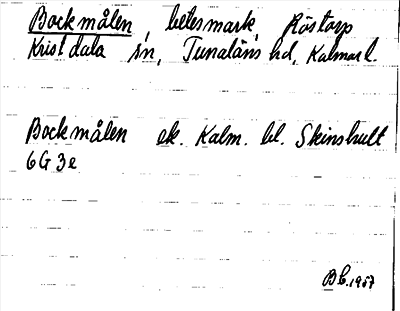 Bockmålen, betesmark, Röstorp
Kristdala sn, Tunaläns hd, Kalmar l.
Bockmålen ek. Kalm. bl. Skinshult
6G 3e
Bb. 1957